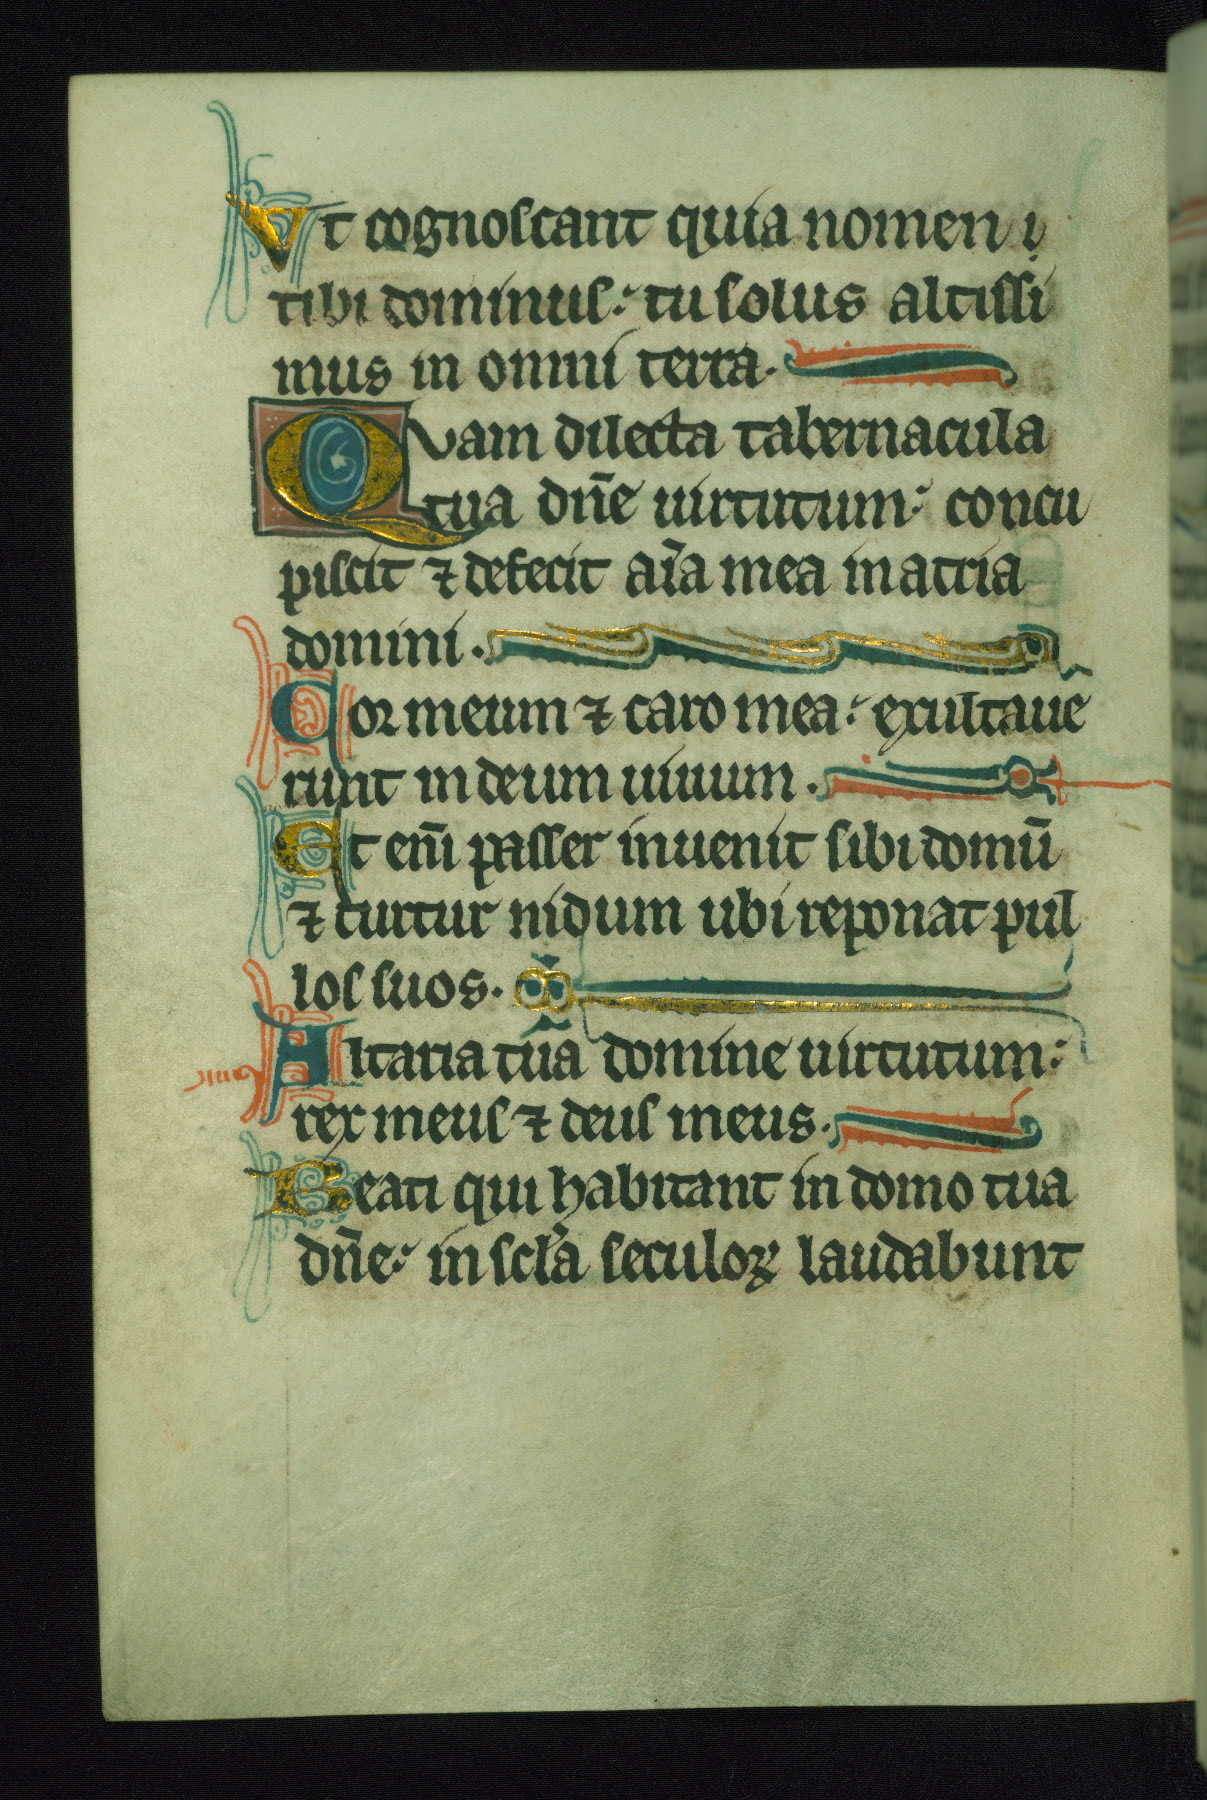 Ut cognoscant quia nomen i
tibi dominus: tu solus altissi
mus in omni terra.
Quam dilecta tabernacula
tua dn̄e uirtutum: concu
piscit ⁊ defecit aīa mea in atria
domini.
Cor meum ⁊ caro mea: exultaue
runt in deum uiuum.
Et eni̅ passer inuenit sibi domū
⁊ turtur nidum ubi reponat pul
los suos.
Altaria tua domine uirtutum:
rex meus ⁊ deus meus.
Beati qui habitant in domo tua
dn̄e: in scl̄a seculoꝝ laudabunt